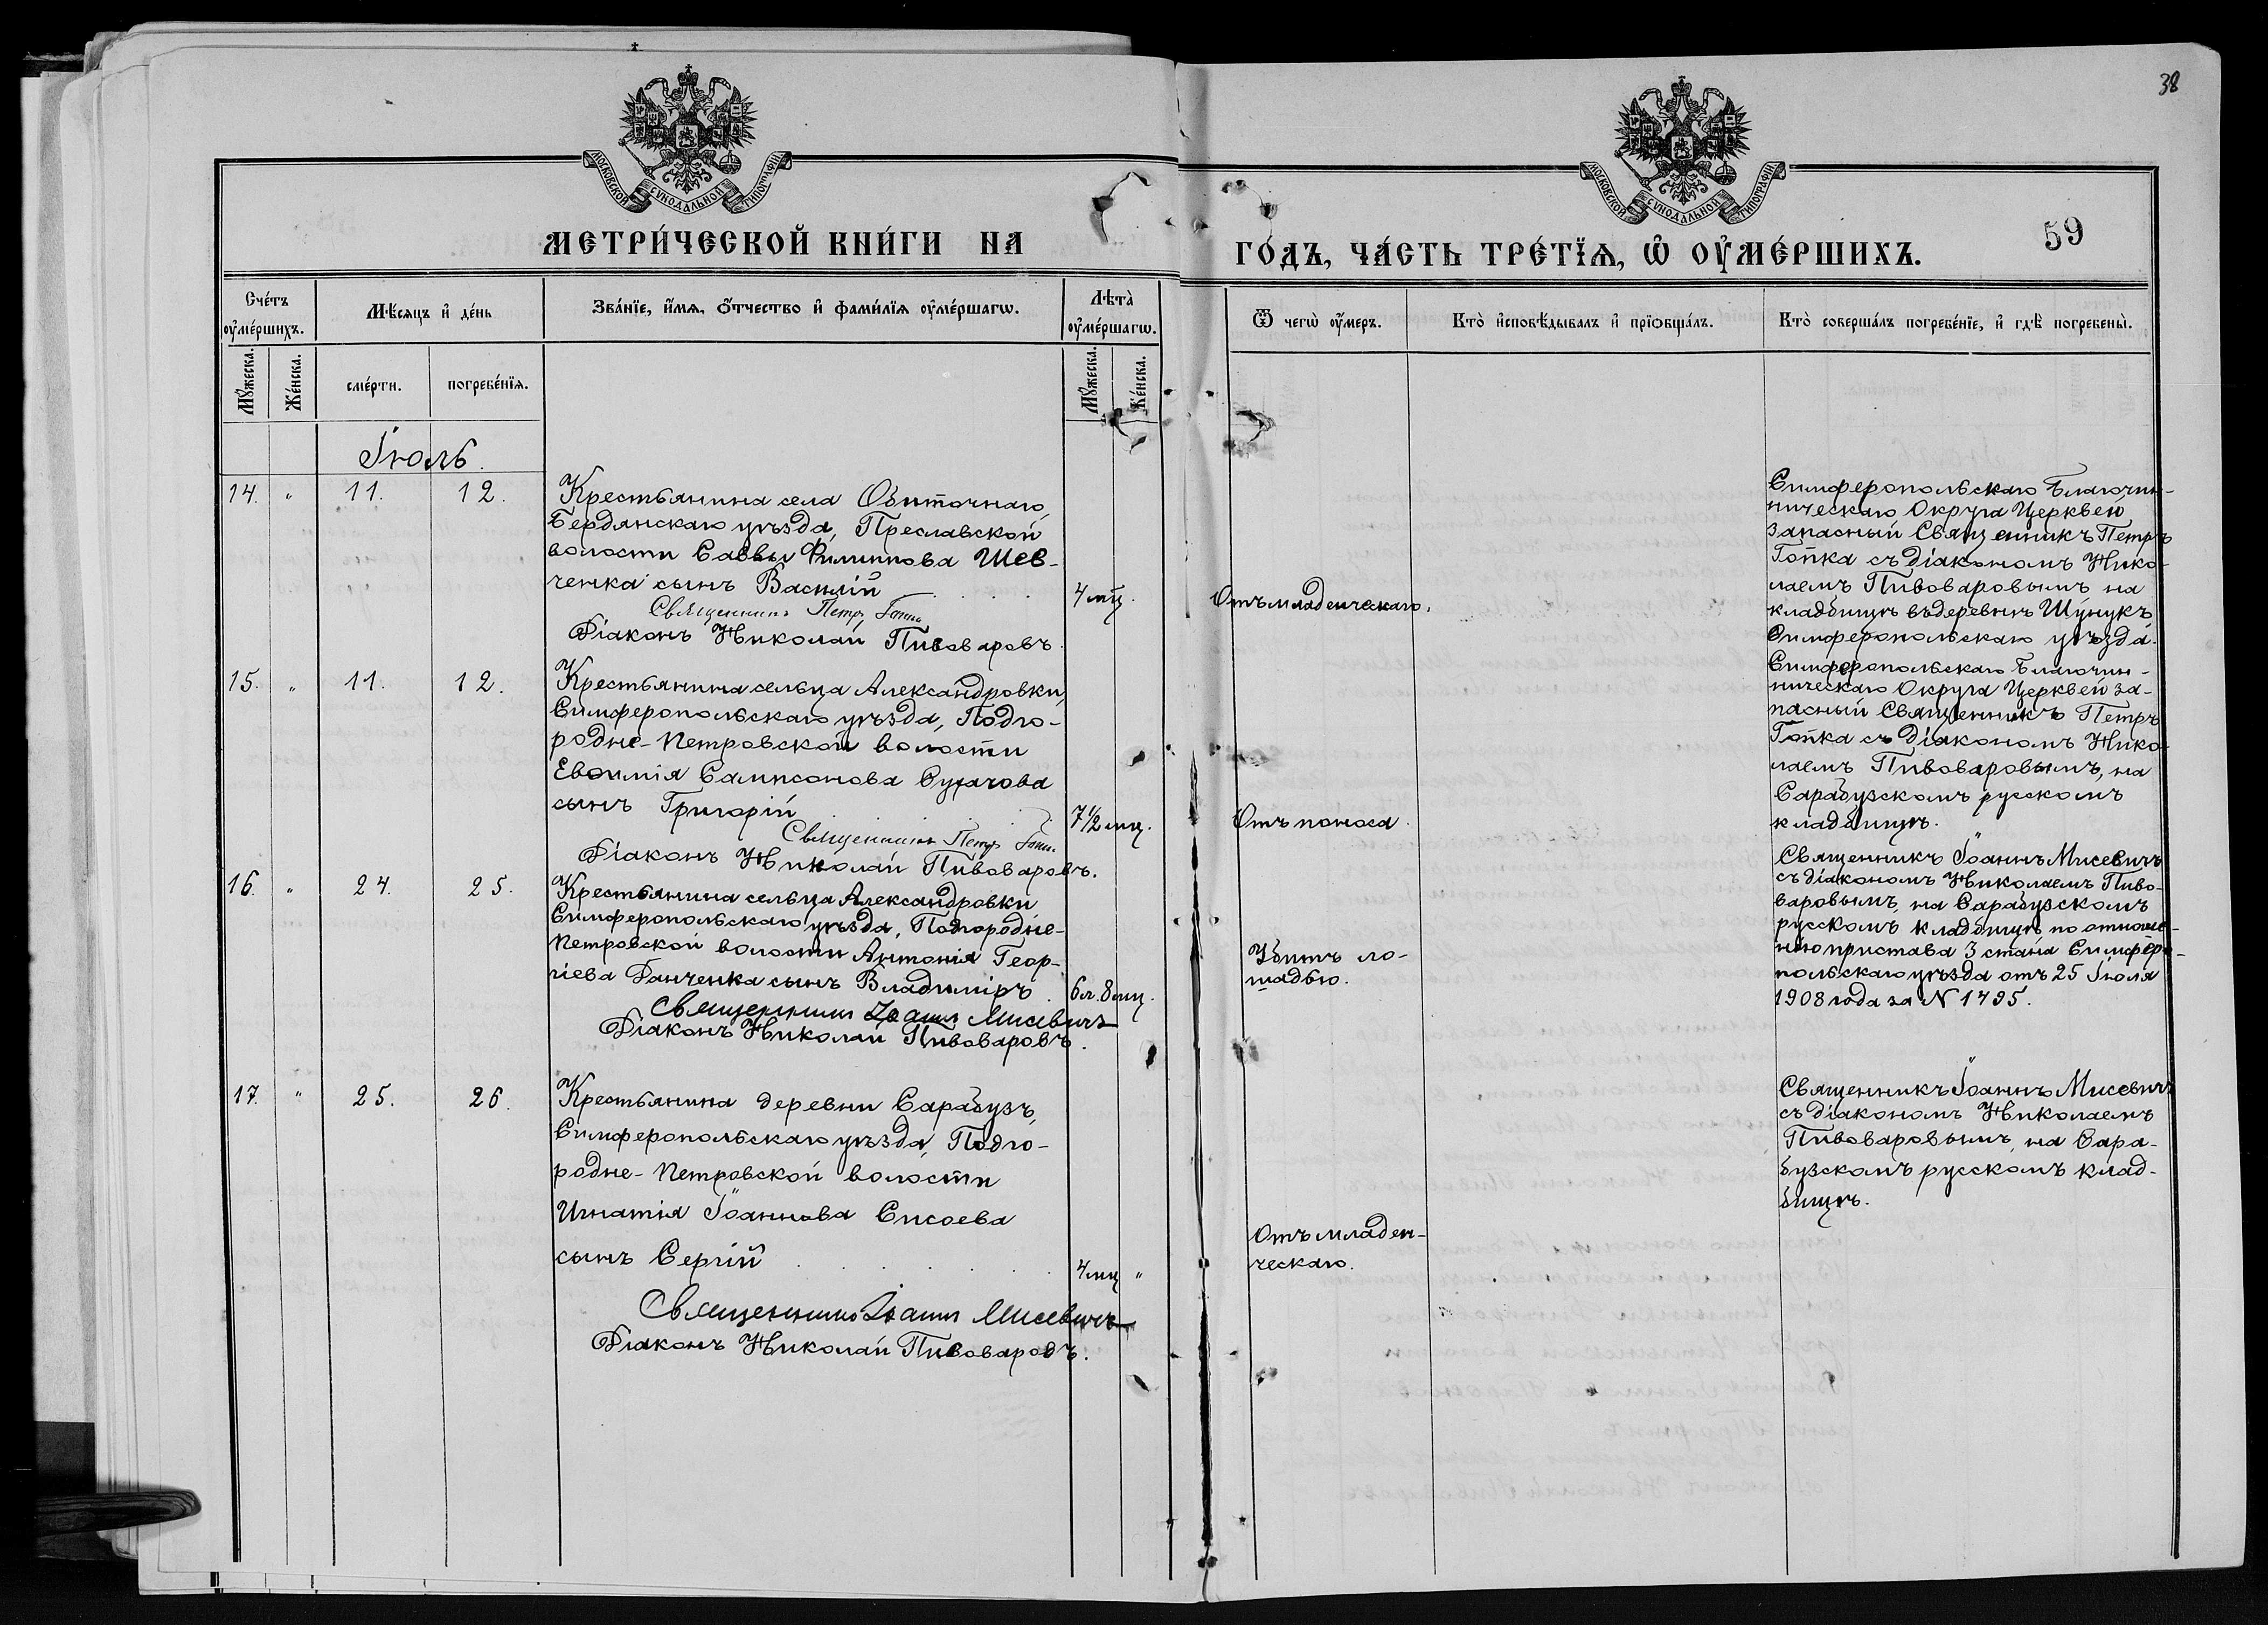 38
МОСКОВСКОЙ СѴНОДАЛЬНОЙ ТИПОГРАФІИ
МОСКОВСКОЙ СѴНОДАЛЬНОЙ ТИПОГРАФІИ
МЕТРИ́ЧЕСКОЙ КНИ́ГИ НА
ГО́ДЪ, ЧА́СТЬ ТРЕ́ТЇѦ, Ѡ҆ ОУ҆МЕ́РШИХЪ.
59
Сче́тъ оу҆ме́ршихъ.
Мѣ́сяцъ и҆ де́нь
Зва́нїе, и҆́мѧ, ѻ҆́тчество и҆ фами́лїѧ оу҆ме́ршагѡ.
Лѣта̀ оу҆ме́ршагѡ.
Ѿ чегѡ̀ оу҆́меръ.
Кто̀ и҆сповѣ́дывалъ и҆ прїѡбща́лъ.
Кто̀ соверша́лъ погребе́нїе, и҆ гдѣ̀ погребены̀.
Мꙋ́жеска.
Же́нска.
сме́рти.
погребе́нїѧ.
Мꙋ́жеска.
Же́нска.
Іюль.
14. " 11. 12.
Крестьянина села Обиточнаго,
Бердянскаго уѣзда, Преславской
волости Саввы Филиппова Шев-
ченка сынъ Василій
4 мц.
Священникъ Петръ Гопка
Діаконъ Николай Пивоваровъ.
Отъ младенческаго.
Симферопольскаго Благочин-
ническаго Округа Церквей
запасный Священникъ Петръ
Гопка съ діакономъ Нико-
лаемъ Пивоваровымъ на
кладбищѣ въ деревнѣ Шунукъ
Симферопольскаго уѣзда.
15. " 11. 12.
Крестьянина сельца Александровки,
Симферопольскаго уѣзда, Подго-
родне-Петровской волости
Евѳимія Сампсонова
сынъ Григорій
7 1/2 мц.
Священникъ Петръ Гопка
Діаконъ Николай Пивоваровъ.
Отъ поноса.
Симферопольскаго Благочин-
ническаго Округа Церквей за-
пасный Священникъ Петръ
Гопка съ діакономъ Нико-
лаемъ Пивоваровымъ, на
Сарабузскомъ русскомъ
кладбищѣ.
16. " 24. 25.
Крестьянина сельца Александровки
Симферопольскаго уѣзда, Подгородне-
Петровской волости Антонія Геор-
гіева Ганченка сынъ Владиміръ
6 л. 8 мц.
Священникъ Іоаннъ Мисевичъ
Діаконъ Николай Пивоваровъ.
Убитъ ло-
шадью.
Священникъ Іоаннъ Мисевичъ
съ діакономъ Николаемъ Пиво-
варовымъ, на Сарабузскомъ
русскомъ кладбищѣ по отноше-
нію пристава 3 стана Симферо-
польскаго уѣзда отъ 25 Іюля
1908 года за N 1495.
17. " 25. 26.
Крестьянина деревни Сарабузъ,
Симферопольскаго уѣзда, Подго-
родне-Петровской волости
Игнатія Іоаннова Сисоева
сынъ Сергій
4 мц "
Священникъ Іоаннъ Мисевичъ
Діаконъ Николай Пивоваровъ.
Отъ младен-
ческаго.
Священникъ Іоаннъ Мисевичъ
съ діакономъ Николаемъ
Пивоваровымъ, на Сара-
бузскомъ русскомъ клад-
бищѣ.